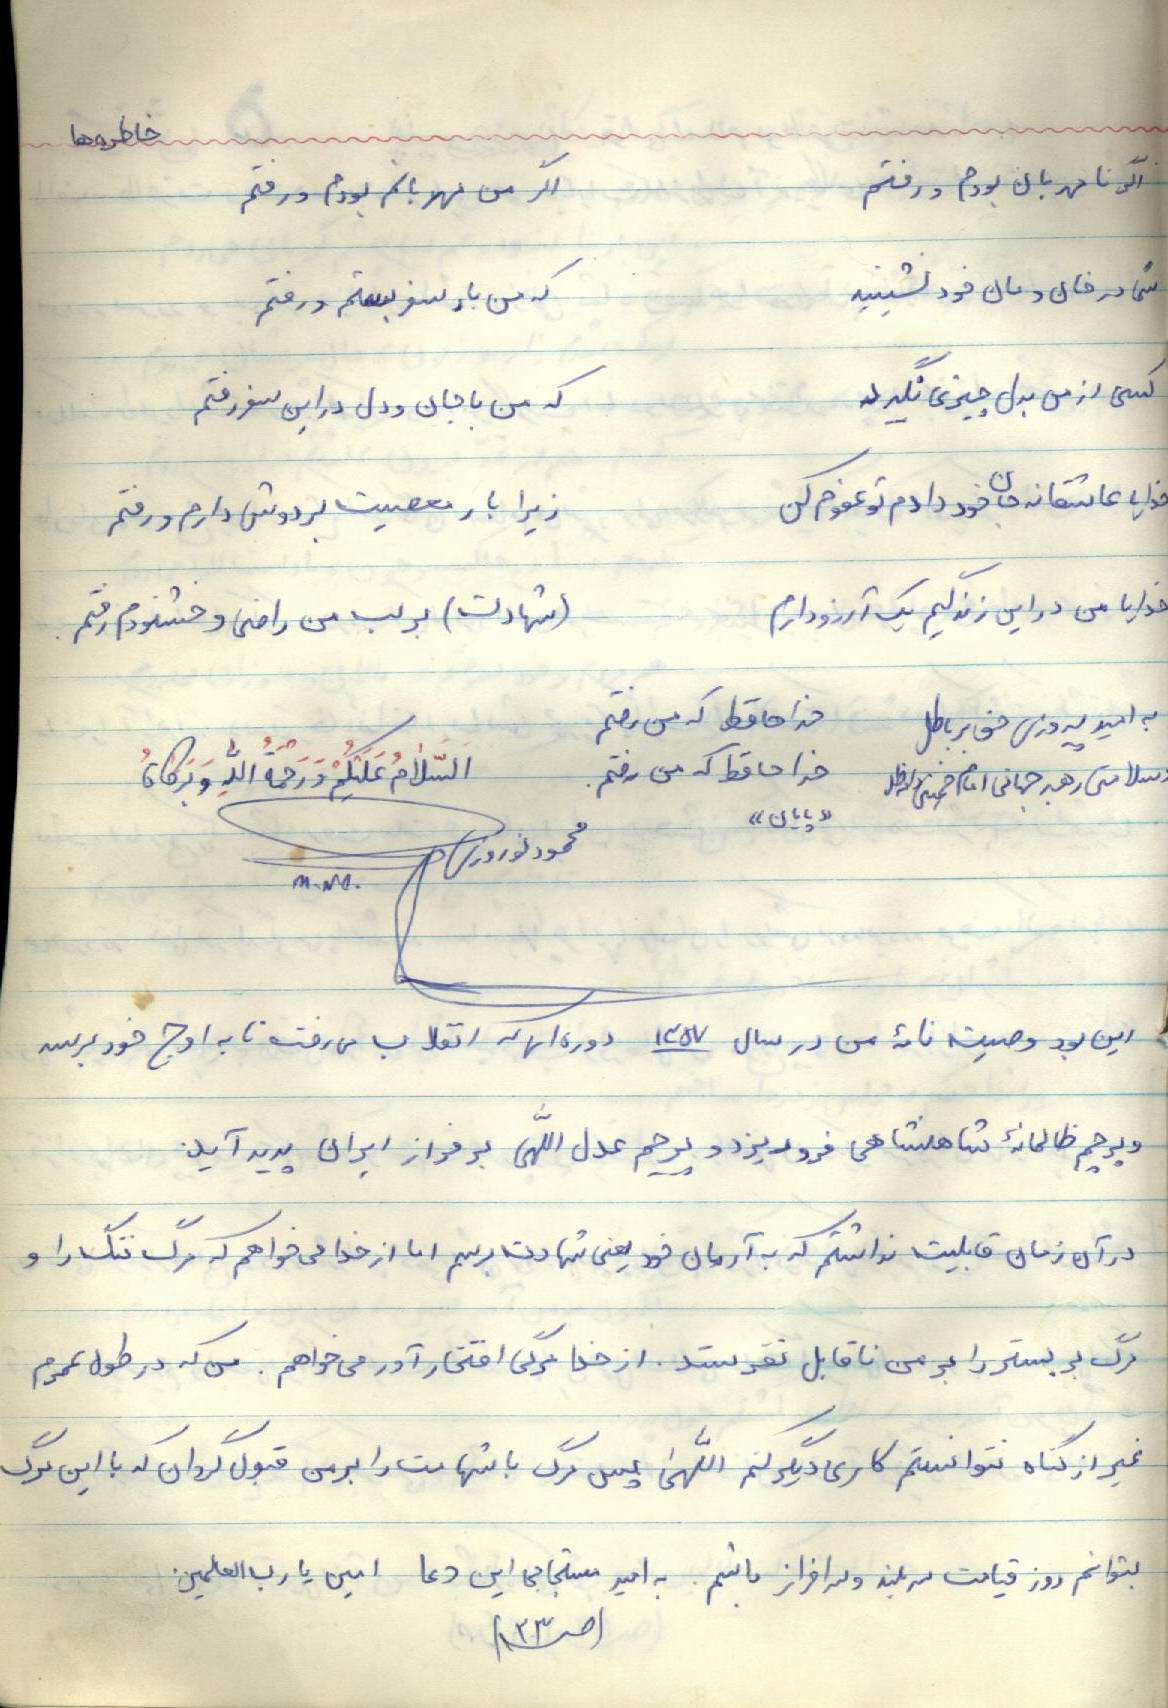 خاطره‌ها
اگر نامهربان بودم و رفتم    اگر من مهربانم بودم و رفتم
شما در خان و مان خود نشینید    که من بار سفر بستم و رفتم
کسی از من بدل چیزی نگیرد    که من با جان و دل در این سفر رفتم
خدایا عاشقانه جان خود دادم تو عفوم کن    زیرا بار معصیت بر دوش دارم و رفتم
خدایا من در این زندگیم یک آرزو دارم    (شهادت) بر لب من راضی و خشنودم رفتم.
به امید پیروزی حق بر باطل    خداحافظ که من رفتم
و سلامتی رهبر جهانی امام خمینی    خداحافظ که من رفتم.    اَلسَّلامُ عَلَیْکُمْ وَ رَحْمَةُ اللهِ وَ بَرَکاتُهُ
«پایان»
محمود نوروزی
م.ن.
این بود وصیت نامهٔ من در سال ۱۳۵۷ دوره‌ای که انقلاب می‌رفت تا به اوج خود برسد
و پرچم ظالمانهٔ شاهنشاهی فرو بریزد و پرچم عدل اللّهی بر فراز ایران پدید آید.
در آن زمان قابلیت نداشتم که به آرمان خود یعنی شهادت برسم اما از خدا می‌خواهم که مرگ ننگ را و
مرگ بر بستر را بر من ناقابل نفرستد. از خدا مرگی افتخارآور می‌خواهم. من که در طول عمرم
غیر از گناه نتوانستم کاری دیگر کنم اللّهی پس مرگ با شهامت را بر من قبول گردان که با این مرگ
بتوانم روز قیامت سربلند و سرافراز باشم. به امید مستجابی این دعا امین یا رب العلمین.
(ص ۱۲۳)